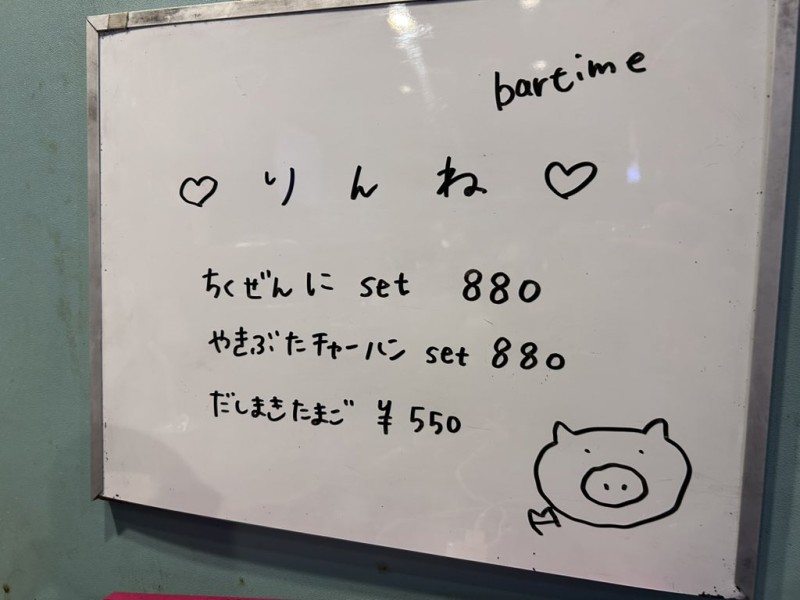 bartime
♡ りんね ♡
ちくぜんに set 880
やきぶたチャーハン set 880
だしまきたまご ¥550